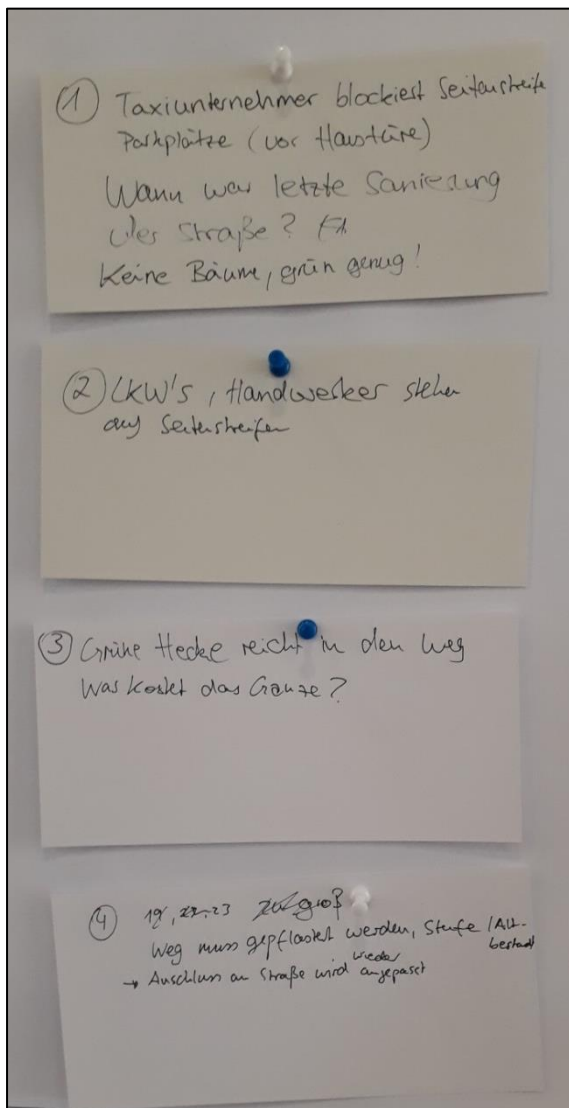 ① Taxiunternehmer blockiert Seitenstreife
Parkplätze (vor Haustüre)
Wann war letzte Sanierung
der Straße?
Keine Bäume, grün genug!
② LKW's, Handwerker stehen
auf Seitenstreifen
③ Grüne Hecke reicht in den Weg
Was kostet das Ganze?
④ 23 groß
Weg muss gepflastert werden, Stufe / Alt-
bestand
wieder
→ Anschluss an Straße wird angepasst